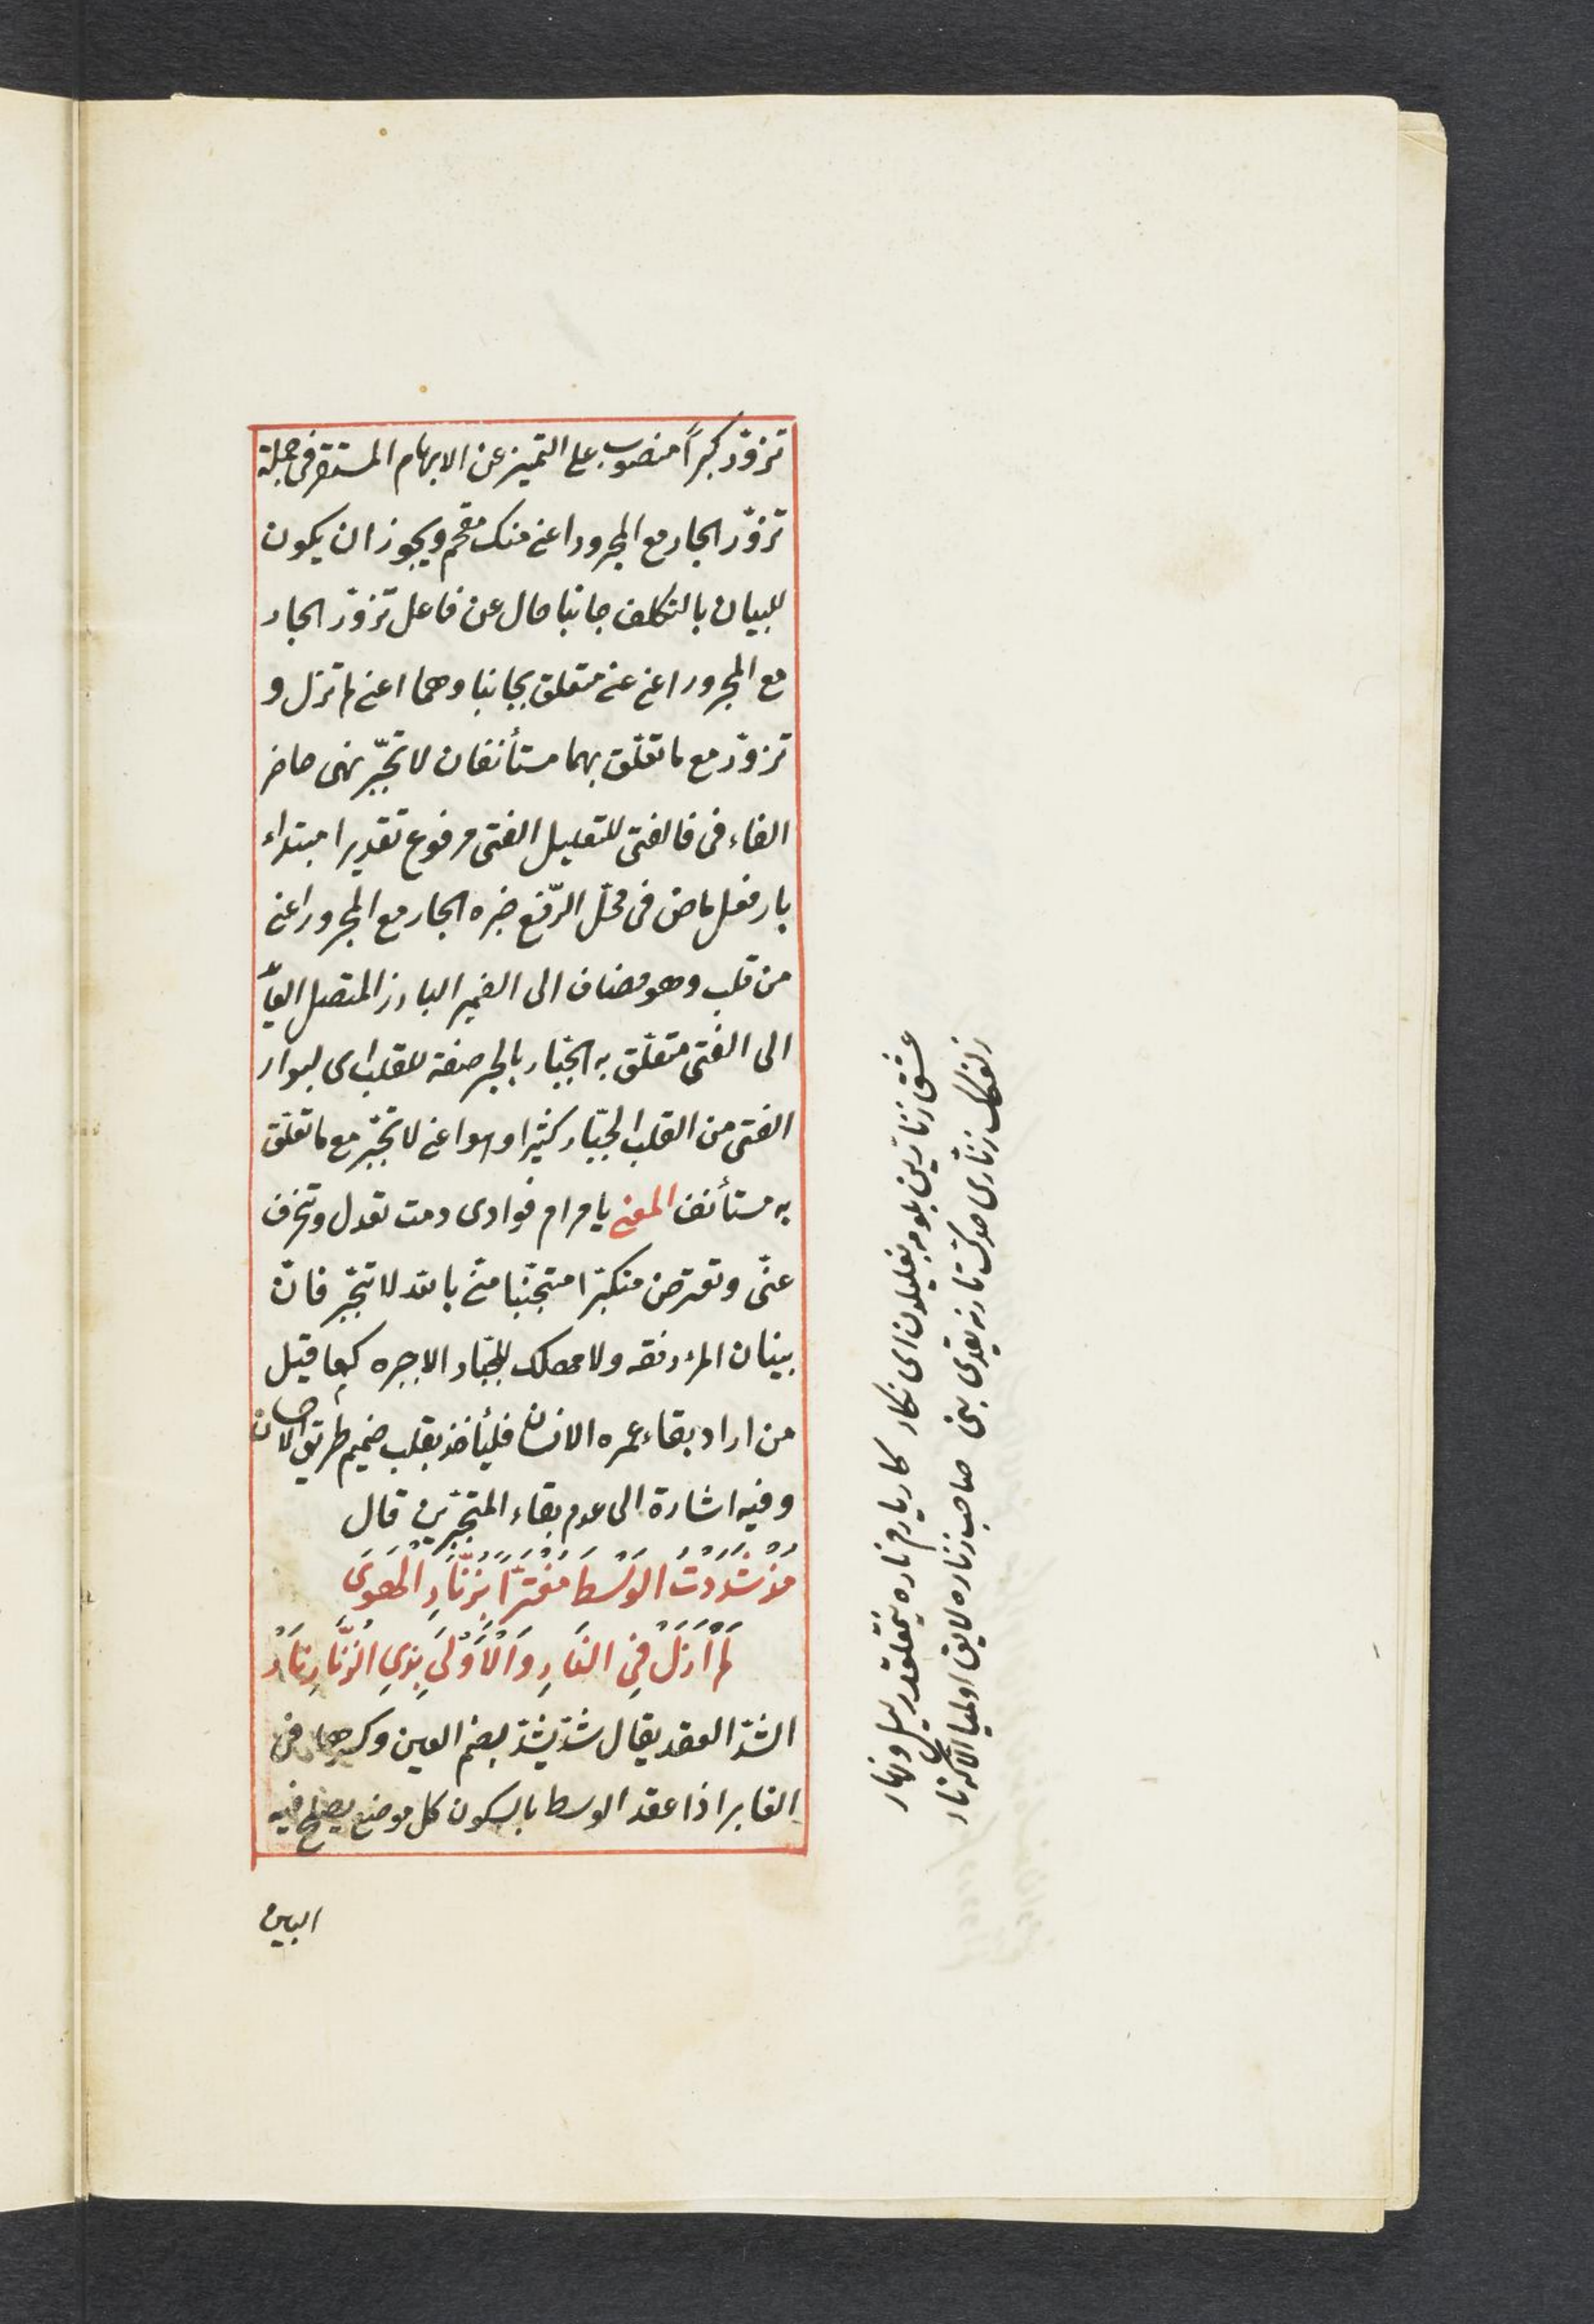 تزوّر كبراً منصوب على التميز عن الابهام المستقر فى جملة
تزوّر الجار مع المجرور اعنى منك مقحم ويجوز ان يكون
للبيان بالتكلف جانبا حال عن فاعل تزوّر الجار
مع المجرور اعنى عنى متعلق بجانبا وهما اعنى لم تزل و
تزوّر مع ما تعلّق بهما مستأنفان لا تجبّر نهى حاضر
الفاء فى فالفتى للتعليل الفتى مرفوع تقديرا مبتداء
بار فعل ماض فى محلّ الرّفع خبره الجار مع المجرور اعنى
من قلب وهو مضاف الى الضمير البارز المتصل العائد
الى الفتى متعلّق به الجبّار بالجر صفة للقلب اى لبوار
الفتى من القلب الجبّار كثيرا وهو اعنى لا تجبّر مع ما تعلّق
به مستأنف المعنى يا مرام فوادى دمت تعدل وتنحرف
عنّى وتعترض متكبّرا متجنّبا منّى بالله لا تتجبّر فانّ
بينان المرء رفقه ولا مهلك للجبّار الا جبره كما قيل
من اراد بقاء عمره الانسان فليأخذ بقلب ضميم طريق الاحسان
وفيه اشارة الى عدم بقاء المتجبّرين قال
مُذْ شَدَدْتُ الوَسْطَ مُغْتَرًّا بِزُنَّارِ الْهَوَى
لَمْ أَزَلْ فِى النَّارِ وَالْأَوْلَى بِذِى الزُّنَّارِ نَارْ
الشدّ العقد يقال شدّ يشدّ بضم العين وكسرها فى
الغابر اذا عقد الوسط بالسكون كل موضع يصلح فيه
البين
عشق زنارين بلومه بغليلون اى نكار كار يارم ناره يعقلقدر ليل ونهار
زلفك زنارى صاحب زناره لايق اوليا الاكه نار